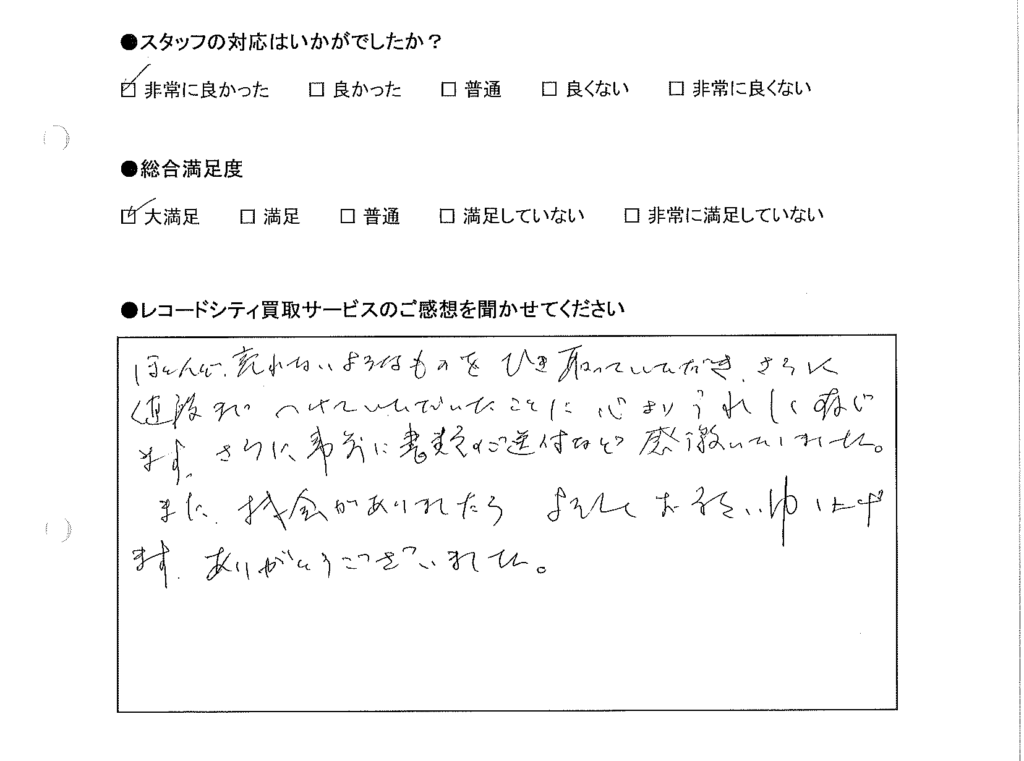 ●スタッフの対応はいかがでしたか？
☑ 非常に良かった □ 良かった □ 普通 □ 良くない □ 非常に良くない
●総合満足度
☑ 大満足 □ 満足 □ 普通 □ 満足していない □ 非常に満足していない
●レコードシティ買取サービスのご感想を聞かせてください
ほとんど、売れないようなものをひき取っていただき、さらに
値段までつけていただいたことに心よりうれしく存じ
ます。さらに、事前に書類のご送付など感激いたしました。
また、機会がありましたらよろしくお願い申し上げ
ます。ありがとうございました。